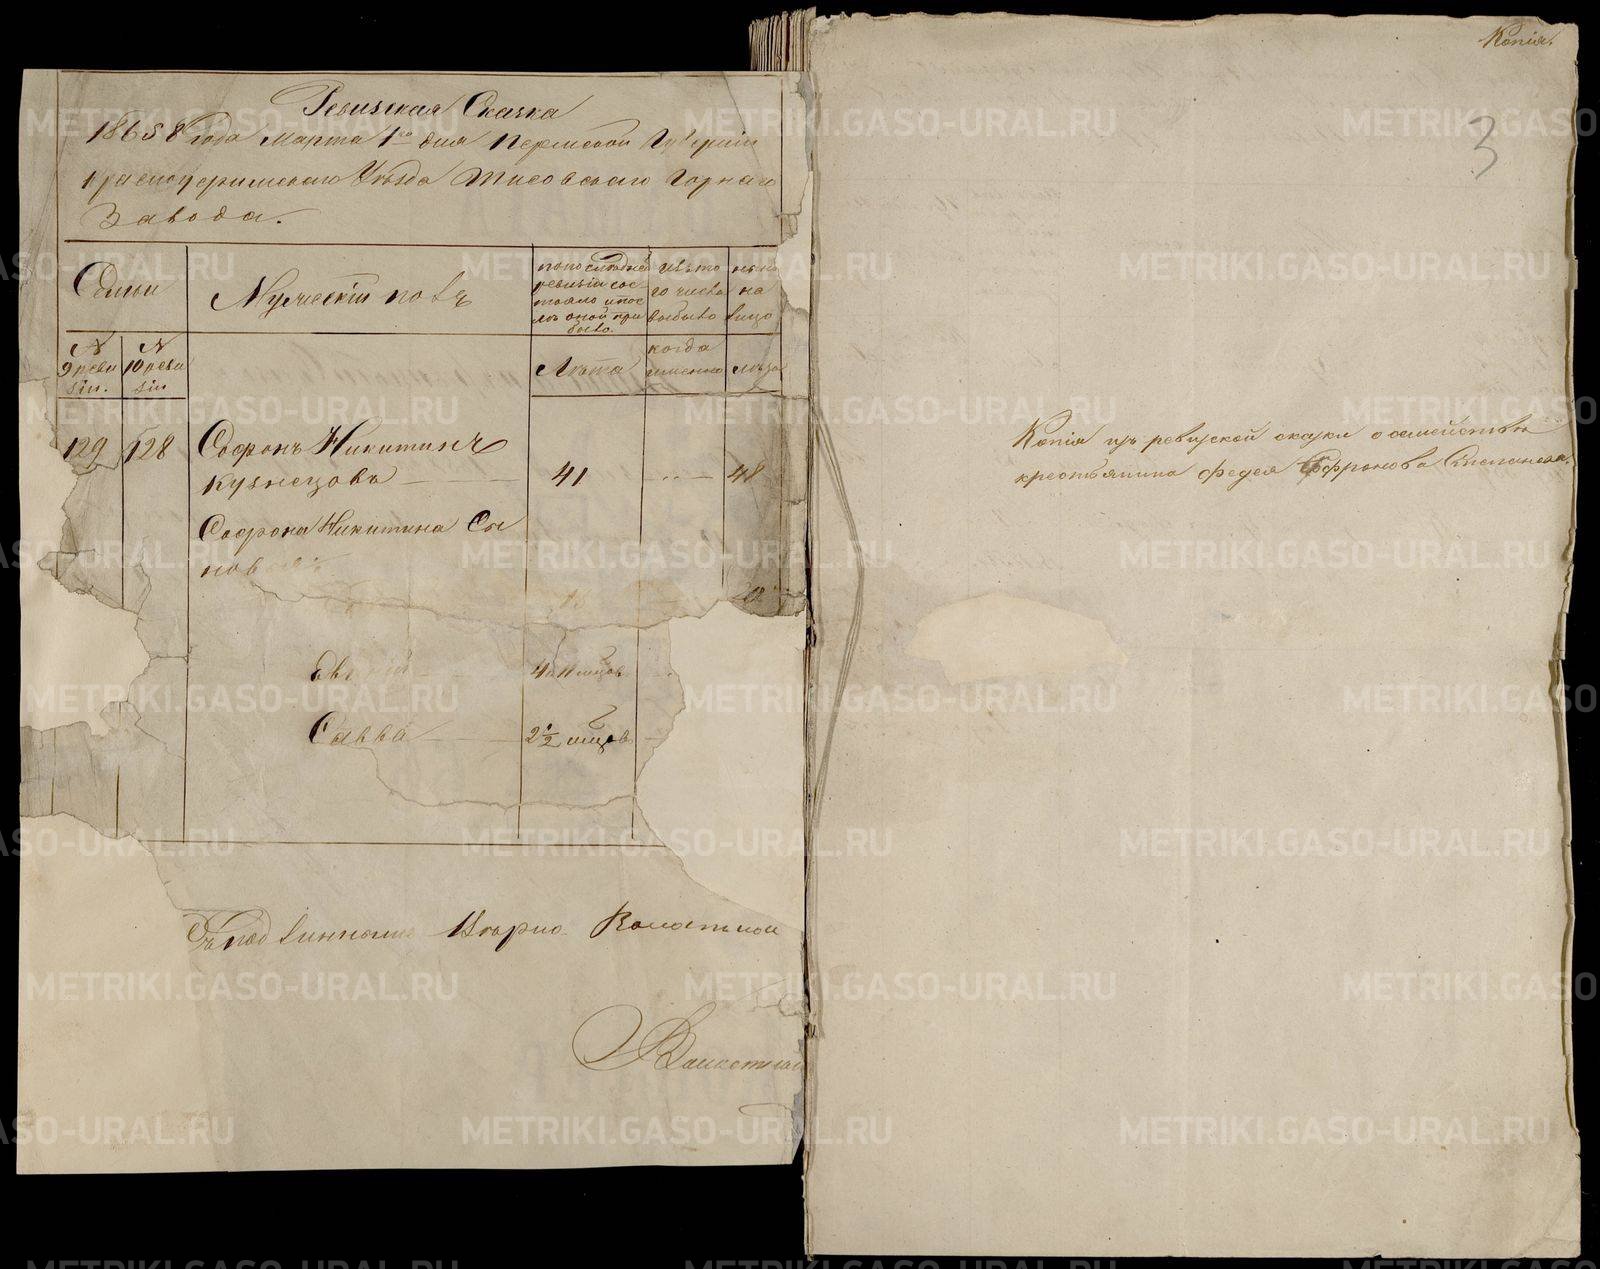 Ревизская Сказка
18658 года Марта 1го дня Пермской Губернии
Красноуфимскаго Уѣзда Тисовскаго Горнаго
Завода.
Семьи
Мужескій полъ
по послѣдней
ревизіи сос-
тояло и пос
лѣ оной при
было.
изъ то
го числа
выбыло
нынѣ
на
лицо
№
9 реви
зіи.
№
10 реви
зіи
Лѣта
когда
именно
лѣта
129
128
Софронъ Никитинъ
Кузнецовъ
41
48
Софрона Никитина Сы
новья
4 и 11 мѣцов
Савва
2 1/2 мѣцов
Съ подлиннымъ вѣрно Волостной
Копія.
3
Копія изъ ревизской сказки о семействѣ
крестьянина Федея Софронова Степанова.
METRIKI.GASO-URAL.RU